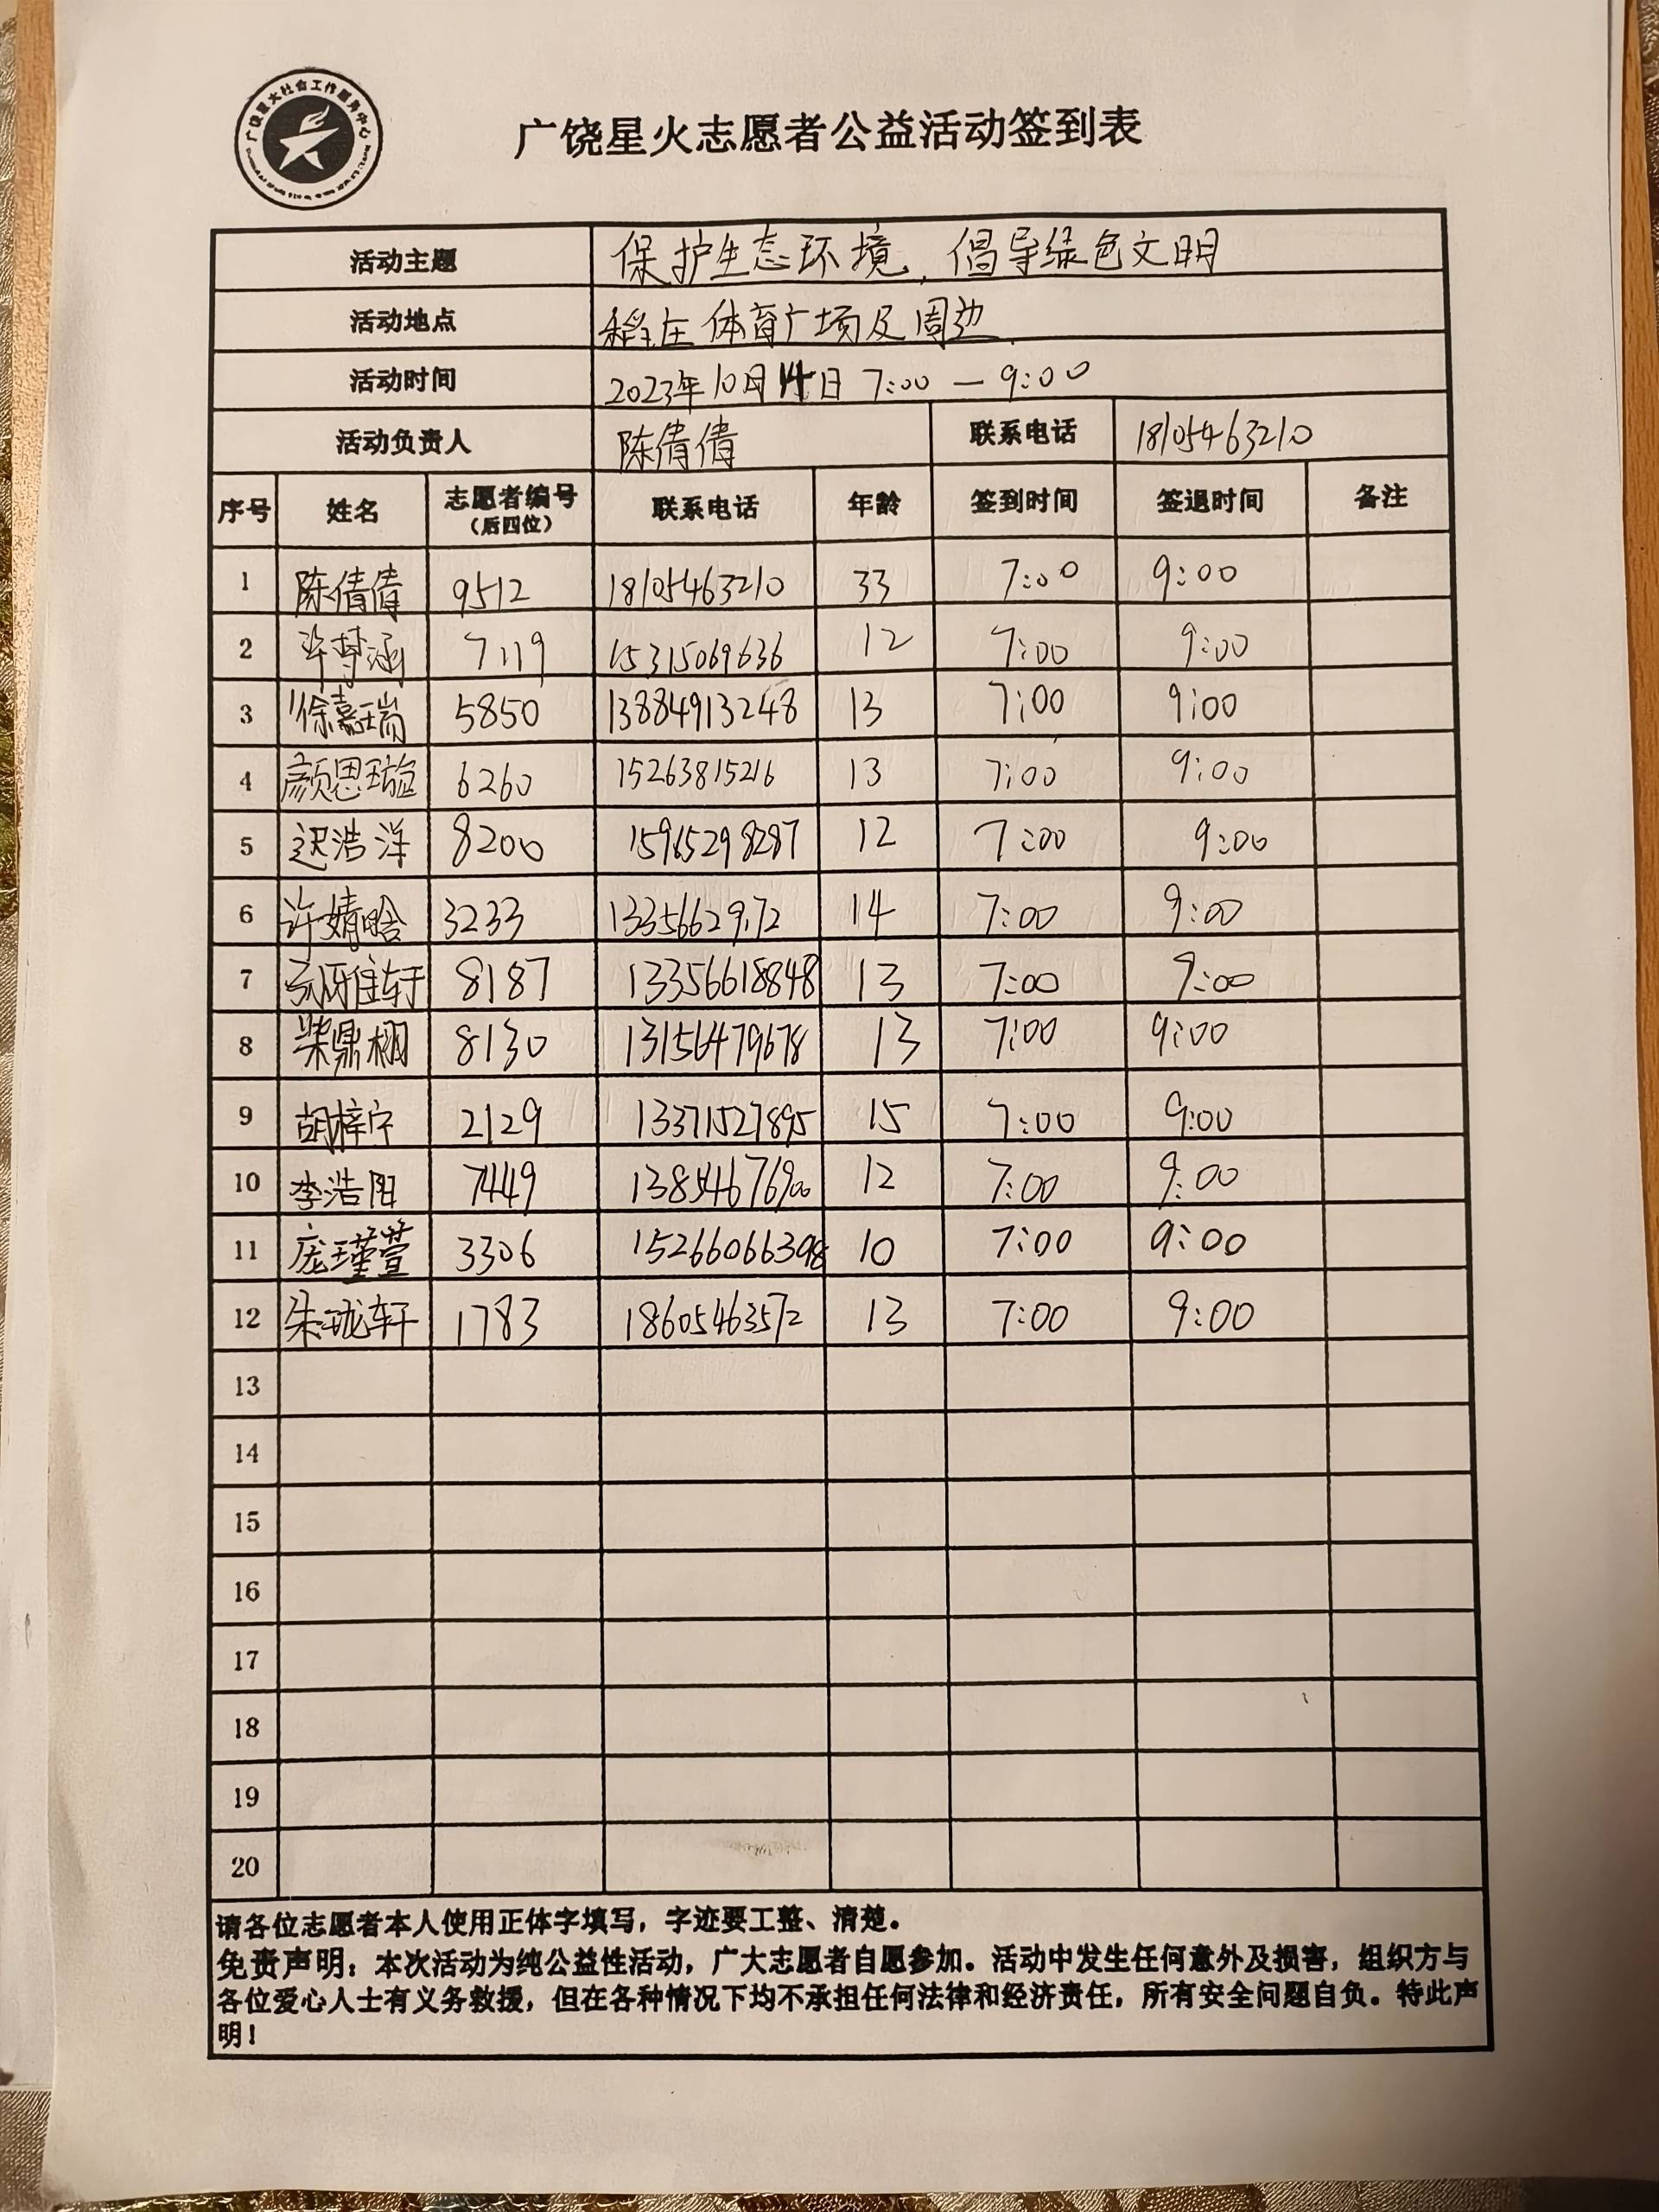 广饶星火社会工作服务中心
广饶星火志愿者公益活动签到表
活动主题 保护生态环境，倡导绿色文明
活动地点 稻庄体育广场及周边
活动时间 2023年10月14日 7:00 — 9:00
活动负责人 陈倩倩 联系电话 18105463210
序号 姓名 志愿者编号（后四位） 联系电话 年龄 签到时间 签退时间 备注
1 陈倩倩 9512 18105463210 33 7:00 9:00
2 许梦涵 7119 15315069636 12 7:00 9:00
3 徐嘉瑞 5850 13884913248 13 7:00 9:00
4 颜思璇 6260 15263815216 13 7:00 9:00
5 迟浩洋 8200 15965298287 12 7:00 9:00
6 许婧晗 3233 13356629172 14 7:00 9:00
7 雅轩 8187 13356618848 13 7:00 9:00
8 柴鼎栩 8130 13156479678 13 7:00 9:00
9 胡梓宁 2129 13371527895 15 7:00 9:00
10 李浩阳 7449 13854676900 12 7:00 9:00
11 庞瑾萱 3306 15266066398 10 7:00 9:00
12 朱珑轩 1783 18605463572 13 7:00 9:00
13
14
15
16
17
18
19
20
请各位志愿者本人使用正体字填写，字迹要工整、清楚。
免责声明：本次活动为纯公益性活动，广大志愿者自愿参加。活动中发生任何意外及损害，组织方与
各位爱心人士有义务救援，但在各种情况下均不承担任何法律和经济责任，所有安全问题自负。特此声
明！